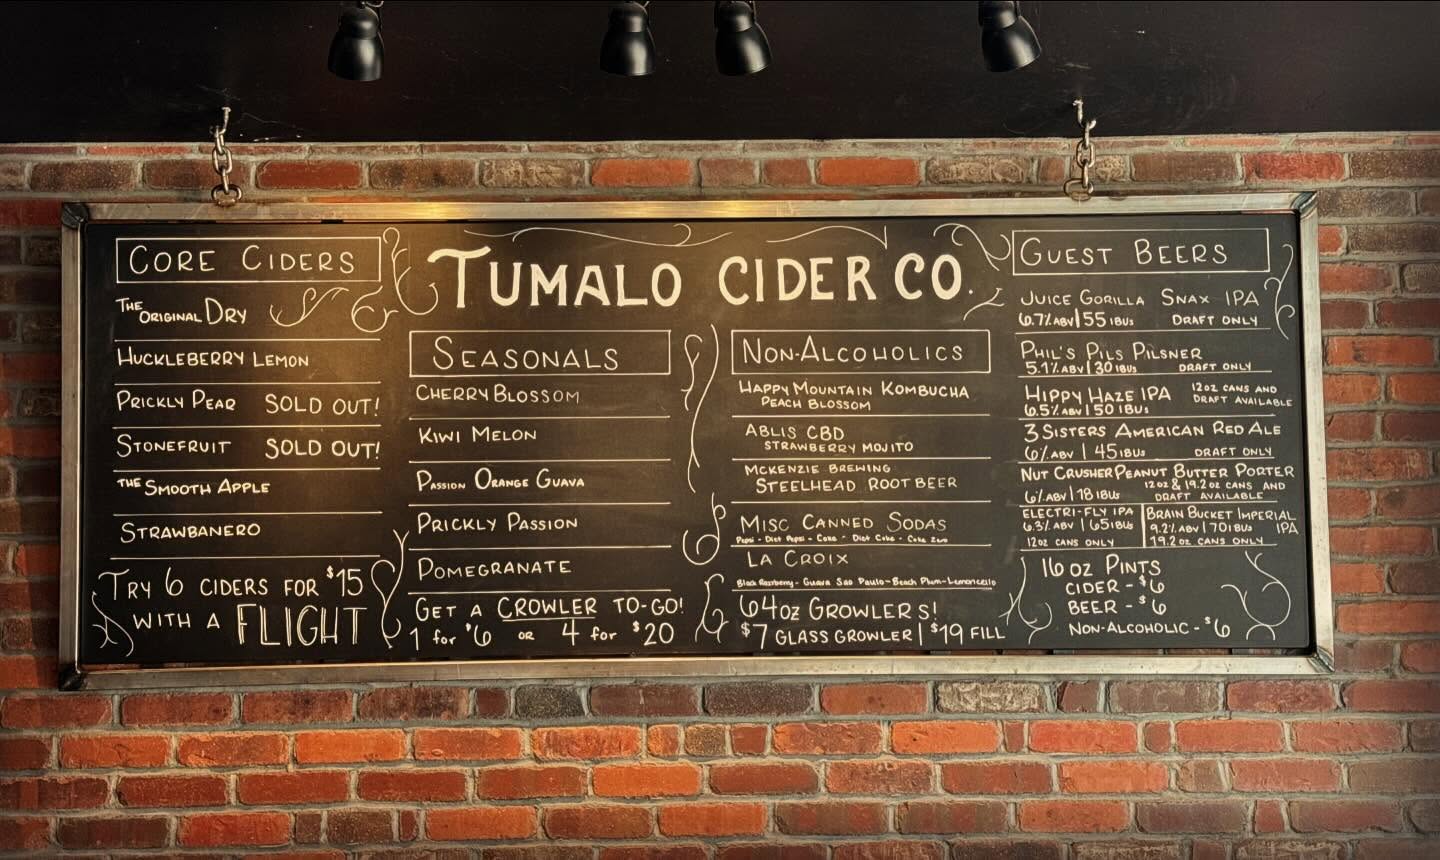 CORE CIDERS
THE ORIGINAL DRY
HUCKLEBERRY LEMON
PRICKLY PEAR SOLD OUT!
STONEFRUIT SOLD OUT!
THE SMOOTH APPLE
STRAWBANERO
TRY 6 CIDERS FOR $15
WITH A FLIGHT
TUMALO CIDER CO.
SEASONALS
CHERRY BLOSSOM
KIWI MELON
PASSION ORANGE GUAVA
PRICKLY PASSION
POMEGRANATE
GET A CROWLER TO-GO!
1 for $6 OR 4 for $20
NON-ALCOHOLICS
HAPPY MOUNTAIN KOMBUCHA
PEACH BLOSSOM
ABLIS CBD
STRAWBERRY MOJITO
MCKENZIE BREWING
STEELHEAD ROOT BEER
MISC CANNED SODAS
Pepsi - Diet Pepsi - Coke - Diet Coke - Coke Zero
LA CROIX
Black Razzberry - Guava Sao Paulo - Beach Plum - Lemoncello
64oz GROWLERS!
$7 GLASS GROWLER | $19 FILL
GUEST BEERS
JUICE GORILLA SNAX IPA
6.7% ABV | 55 IBUs DRAFT ONLY
PHIL'S PILS PILSNER
5.1% ABV | 30 IBUs DRAFT ONLY
HIPPY HAZE IPA 12oz CANS AND
6.5% ABV | 50 IBUs DRAFT AVAILABLE
3 SISTERS AMERICAN RED ALE
6% ABV | 45 IBUs DRAFT ONLY
NUT CRUSHER PEANUT BUTTER PORTER
6% ABV | 18 IBUs 12oz & 19.2oz CANS AND
DRAFT AVAILABLE
ELECTRI-FLY IPA
6.3% ABV | 65 IBUs
12oz CANS ONLY
BRAIN BUCKET IMPERIAL
9.2% ABV | 70 IBUs IPA
19.2oz CANS ONLY
16 OZ PINTS
CIDER - $6
BEER - $6
NON-ALCOHOLIC - $6